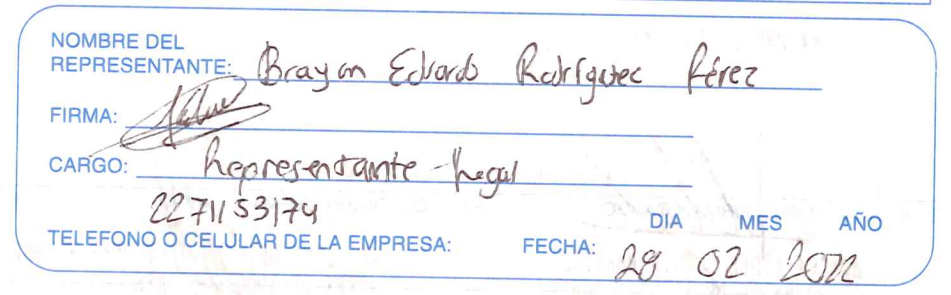 NOMBRE DEL
REPRESENTANTE: Brayan Eduardo Rodríguez Pérez
FIRMA:
CARGO: Representante Legal
2271153174
TELEFONO O CELULAR DE LA EMPRESA:
FECHA: DIA MES AÑO
28 02 2022